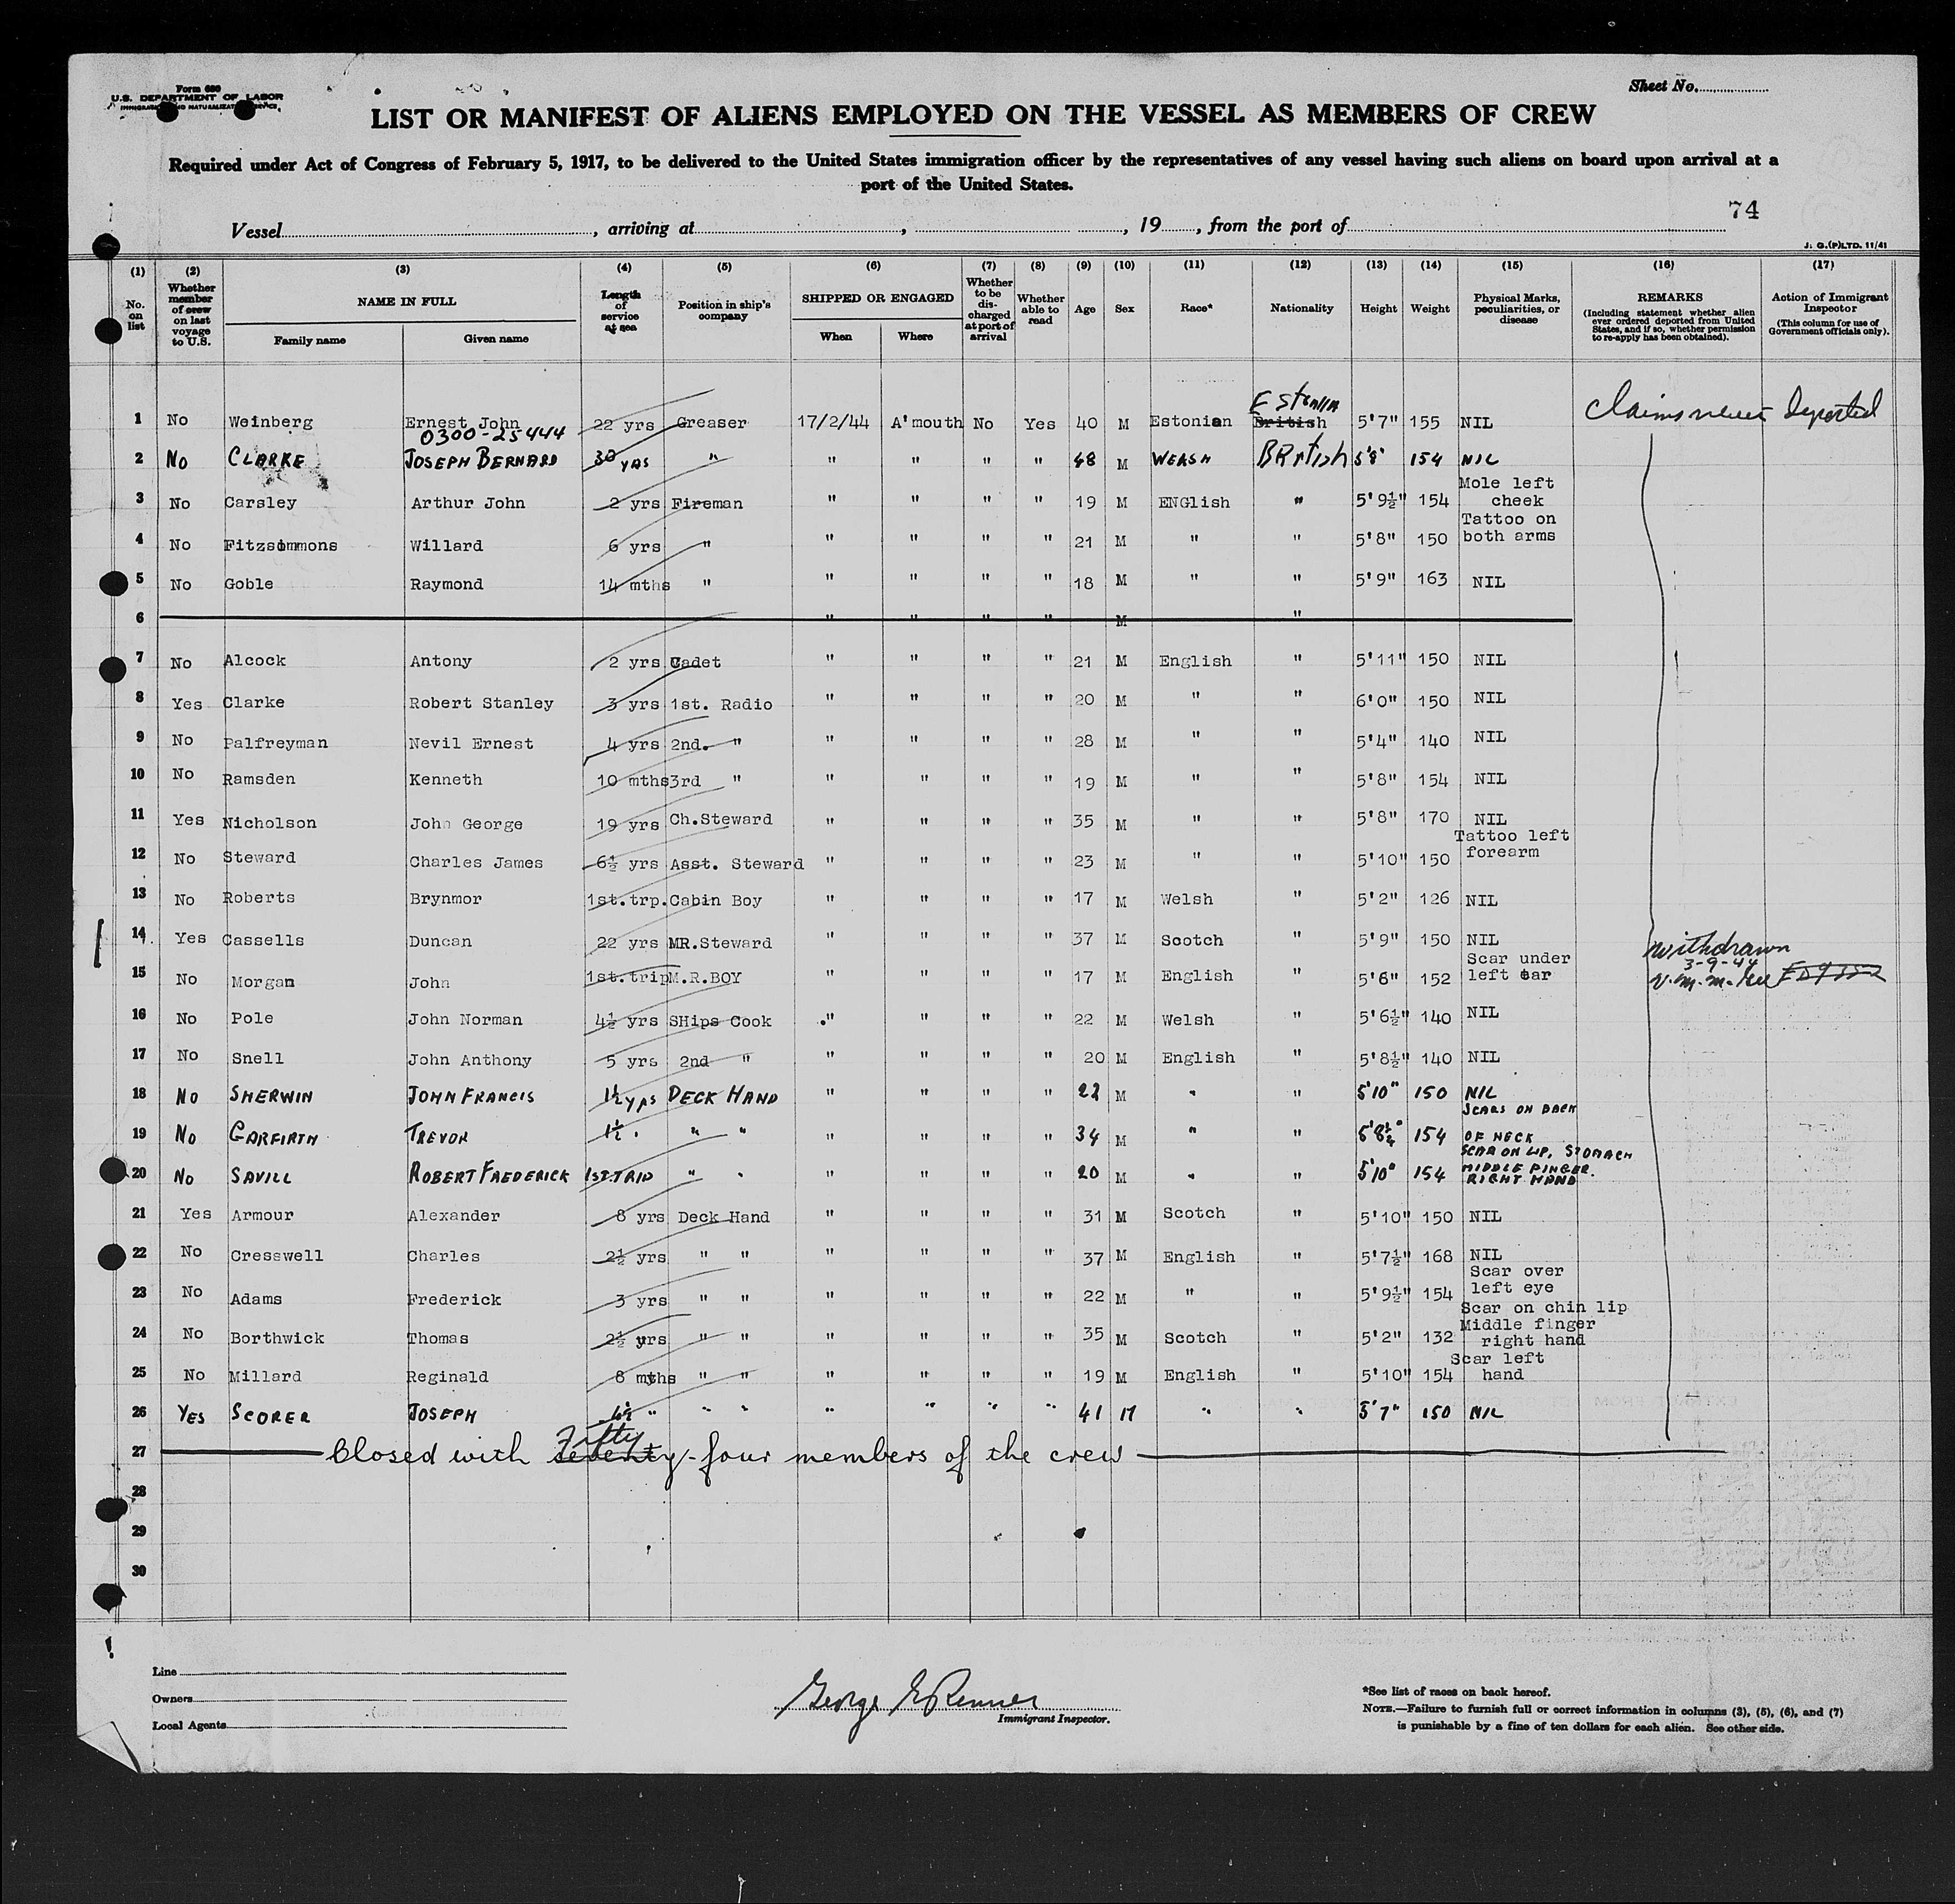 Form 680
U.S. DEPARTMENT OF LABOR
Sheet No.
LIST OR MANIFEST OF ALIENS EMPLOYED ON THE VESSEL AS MEMBERS OF CREW
Required under Act of Congress of February 5, 1917, to be delivered to the United States immigration officer by the representatives of any vessel having such aliens on board upon arrival at a
port of the United States.
74
Vessel , arriving at , , 19 , from the port of
J. G.(P)LTD. 11/41
(1) (2) (3) (4) (5) (6) (7) (8) (9) (10) (11) (12) (13) (14) (15) (16) (17)
No. on list Whether member of crew on last voyage to U.S. NAME IN FULL Family name Given name Length of service at sea Position in ship's company SHIPPED OR ENGAGED When Where Whether to be discharged at port of arrival Whether able to read Age Sex Race* Nationality Height Weight Physical Marks, peculiarities, or disease REMARKS (Including statement whether alien ever ordered deported from United States, and if so, whether permission to re-apply has been obtained). Action of Immigrant Inspector (This column for use of Government officials only).
1 No Weinberg Ernest John 22 yrs Greaser 17/2/44 A'mouth No Yes 40 M Estonian British Estonia 5'7" 155 NIL Claims never Deported
0300-25444
2 No CLARKE JOSEPH BERNARD 30 YRS " " " " " 48 M WELSH BRitish 5'8" 154 NIL
3 No Carsley Arthur John 2 yrs Fireman " " " " 19 M ENGlish " 5'9½" 154 Mole left cheek
4 No Fitzsimmons Willard 6 yrs " " " " " 21 M " " 5'8" 150 Tattoo on both arms
5 No Goble Raymond 14 mths " " " " " 18 M " " 5'9" 163 NIL
6 " " " " M "
7 No Alcock Antony 2 yrs Cadet " " " " 21 M English " 5'11" 150 NIL
8 Yes Clarke Robert Stanley 3 yrs 1st. Radio " " " " 20 M " " 6'0" 150 NIL
9 No Palfreyman Nevil Ernest 4 yrs 2nd. " " " " " 28 M " " 5'4" 140 NIL
10 No Ramsden Kenneth 10 mths 3rd " " " " " 19 M " " 5'8" 154 NIL
11 Yes Nicholson John George 19 yrs Ch.Steward " " " " 35 M " " 5'8" 170 NIL
12 No Steward Charles James 6½ yrs Asst. Steward " " " " 23 M " " 5'10" 150 Tattoo left forearm
13 No Roberts Brynmor 1st.trp. Cabin Boy " " " " 17 M Welsh " 5'2" 126 NIL
14 Yes Cassells Duncan 22 yrs MR.Steward " " " " 37 M Scotch " 5'9" 150 NIL withdrawn
3-9-44
15 No Morgan John 1st.trip M.R.BOY " " " " 17 M English " 5'6" 152 Scar under left ear
16 No Pole John Norman 4½ yrs SHips Cook " " " " 22 M Welsh " 5'6½" 140 NIL
17 No Snell John Anthony 5 yrs 2nd " " " " " 20 M English " 5'8½" 140 NIL
18 No SHERWIN JOHN FRANCIS 1½ YRS DECK HAND " " " " 22 M " " 5'10" 150 NIL
19 No GARFIRTH TREVOR 1½ " " " " " " " 34 M " " 5'8½" 154 SCARS ON BACK OF NECK
20 No SAVILL ROBERT FREDERICK 1ST.TRIP " " " " " " 20 M " " 5'10" 154 SCAR ON LIP, STOMACH MIDDLE FINGER. RIGHT HAND
21 Yes Armour Alexander 8 yrs Deck Hand " " " " 31 M Scotch " 5'10" 150 NIL
22 No Cresswell Charles 2½ yrs " " " " " " 37 M English " 5'7½" 168 NIL
23 No Adams Frederick 3 yrs " " " " " " 22 M " " 5'9½" 154 Scar over left eye
24 No Borthwick Thomas 2½ yrs " " " " " " 35 M Scotch " 5'2" 132 Scar on chin lip Middle finger right hand
25 No Millard Reginald 8 mths " " " " " " 19 M English " 5'10" 154 Scar left hand
26 YES SCORER JOSEPH " " " " " " " 41 M " " 5'7" 150 NIL
27 Closed with Seventy Fifty-four members of the crew
28
29
30
Line
Owners
Local Agents
George E Renner
Immigrant Inspector.
*See list of races on back hereof.
NOTE.—Failure to furnish full or correct information in columns (3), (5), (6), and (7)
is punishable by a fine of ten dollars for each alien. See other side.